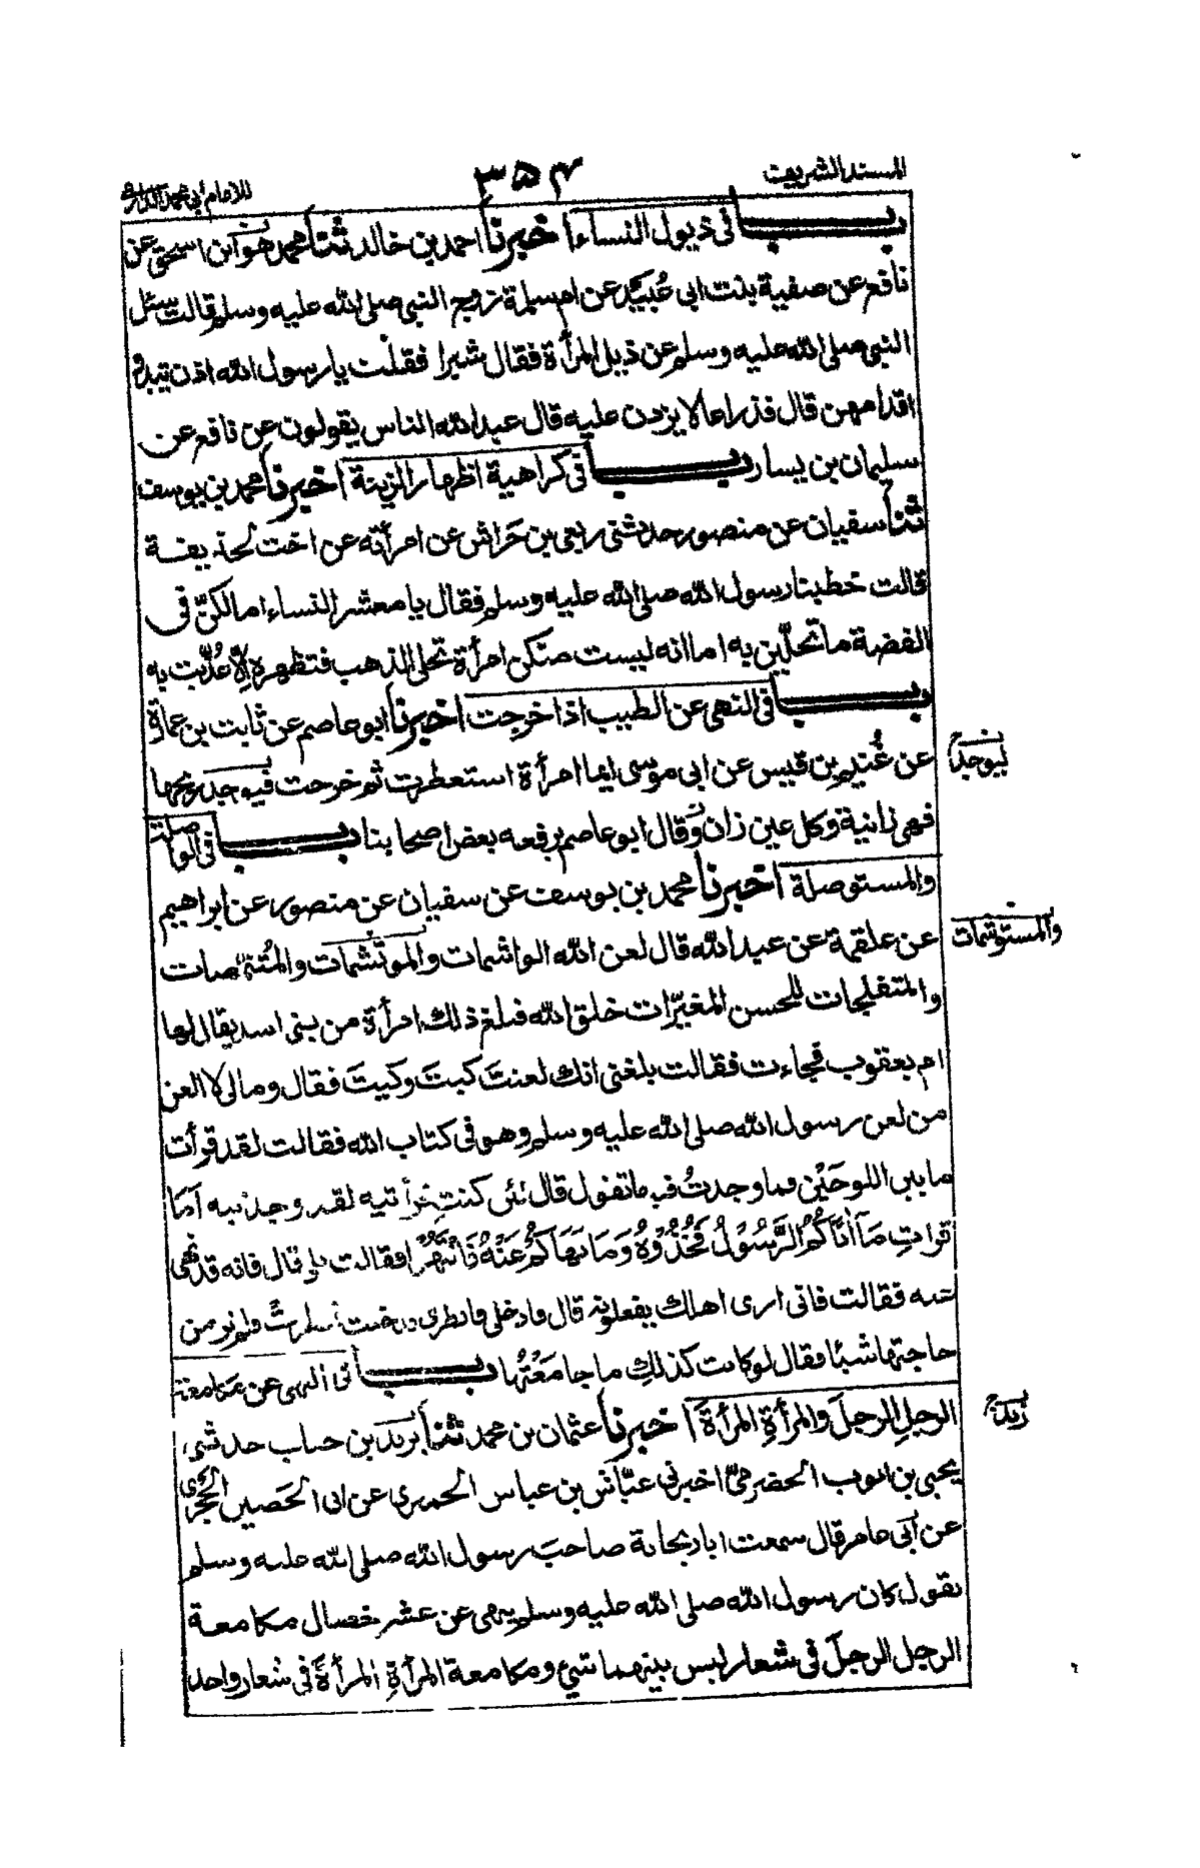 المسند الشريف
۳۵۴
للامام ابي محمد الدارمي
باب في ذيول النساء اخبرنا احمد بن خالد ثنا محمد هو ابن اسحق عن
نافع عن صفية بنت ابي عُبَيد عن ام سلمة زوج النبي صلى الله عليه وسلم قالت سئل
النبي صلى الله عليه وسلم عن ذيل المرأة فقال شبرا فقلت يا رسول الله اذن تبدو
اقدامهن قال فذراعا لا يزدن عليه قال عبد الله الناس يقولون عن نافع عن
سليمان بن يسار باب في كراهية اظهار الزينة اخبرنا محمد بن يوسف
ثنا سفيان عن منصور حدثني ربعي بن حَراش عن امرأته عن اخت لحذيفة
قالت خطبنا رسول الله صلى الله عليه وسلم فقال يا معشر النساء اما لكنّ في
الفضة ما تحلّين به اما انه ليست منكن امرأة تحلى الذهب فتظهره الّا عُذّبت به
باب في النهي عن الطيب اذا خرجت اخبرنا ابو عاصم عن ثابت بن عمارة
عن غُنيم بن قيس عن ابي موسى ايما امرأة استعطرت ثم خرجت فيوجد ريحها
ليوجد
فهي زانية وكل عين زان وقال ابو عاصم يرفعه بعض اصحابنا باب في الواصلة
والمستوصلة اخبرنا محمد بن يوسف عن سفيان عن منصور عن ابراهيم
عن علقمة عن عبد الله قال لعن الله الواشمات والموتشمات والمُتنمّصات
والمستوشمات
والمتفلجات للحسن المغيّرات خلق الله فبلغ ذلك امرأة من بني اسد يقال لها
ام يعقوب فجاءت فقالت بلغني انك لعنتَ كيتَ وكيتَ فقال ومالي لا العن
من لعن رسول الله صلى الله عليه وسلم وهو في كتاب الله فقالت لقد قرأت
ما بين اللوحَين فما وجدتُ فيه ما تقول قال لئن كنتِ قرأتيه لقد وجدتيه اَمَا
قراتِ مَآ اٰتَاكُمُ الرَّسُوْلُ فَخُذُوْهُ وَمَا نَهَاكُمْ عَنْهُ فَانْتَهُوْا فقالت بلى قال فانه قد نهى
عنه فقالت فاني ارى اهلك يفعلونه قال فادخلي فانظري فدخلت فنظرت فلم تر من
حاجتها شيئا فقال لو كانت كذلكِ ما جامَعْتُها باب في النهي عن مكامعة
الرجلِ الرجلَ والمرأةِ المرأةَ اخبرنا عثمان بن محمد ثنا يزيد بن حباب حدثني
زيد
يحيى بن ايوب الحضرميّ اخبرني عيّاش بن عباس الحميري عن ابي الحَصين الحَجْري
عن ابي عامر قال سمعت ابا ريحانة صاحبَ رسول الله صلى الله عليه وسلم
يقول كان رسول الله صلى الله عليه وسلم ينهى عن عشر خصال مكامعة
الرجل الرجلَ في شعار ليس بينهما شيء ومكامعة المرأةِ المرأةَ في شعار واحد